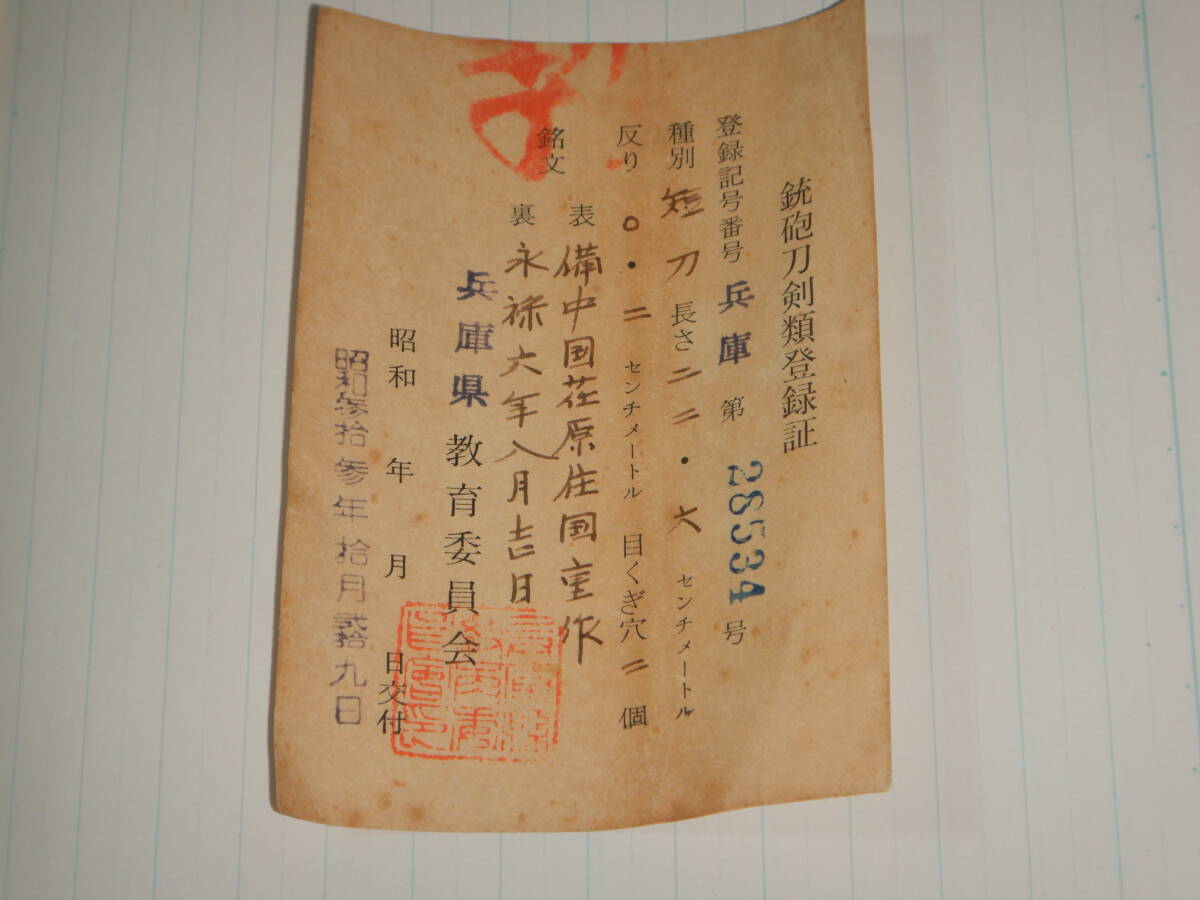 銃砲刀剣類登録証
登録記号番号 兵庫 第 28534 号
種別 短刀 長さ 二二・六 センチメートル
反り 〇・二 センチメートル 目くぎ穴 二 個
銘文
表 備中国荏原住国重作
裏 永禄六年八月吉日
兵庫県 教育委員会
昭和 年 月 日交付
昭和参拾参年拾月弐拾九日